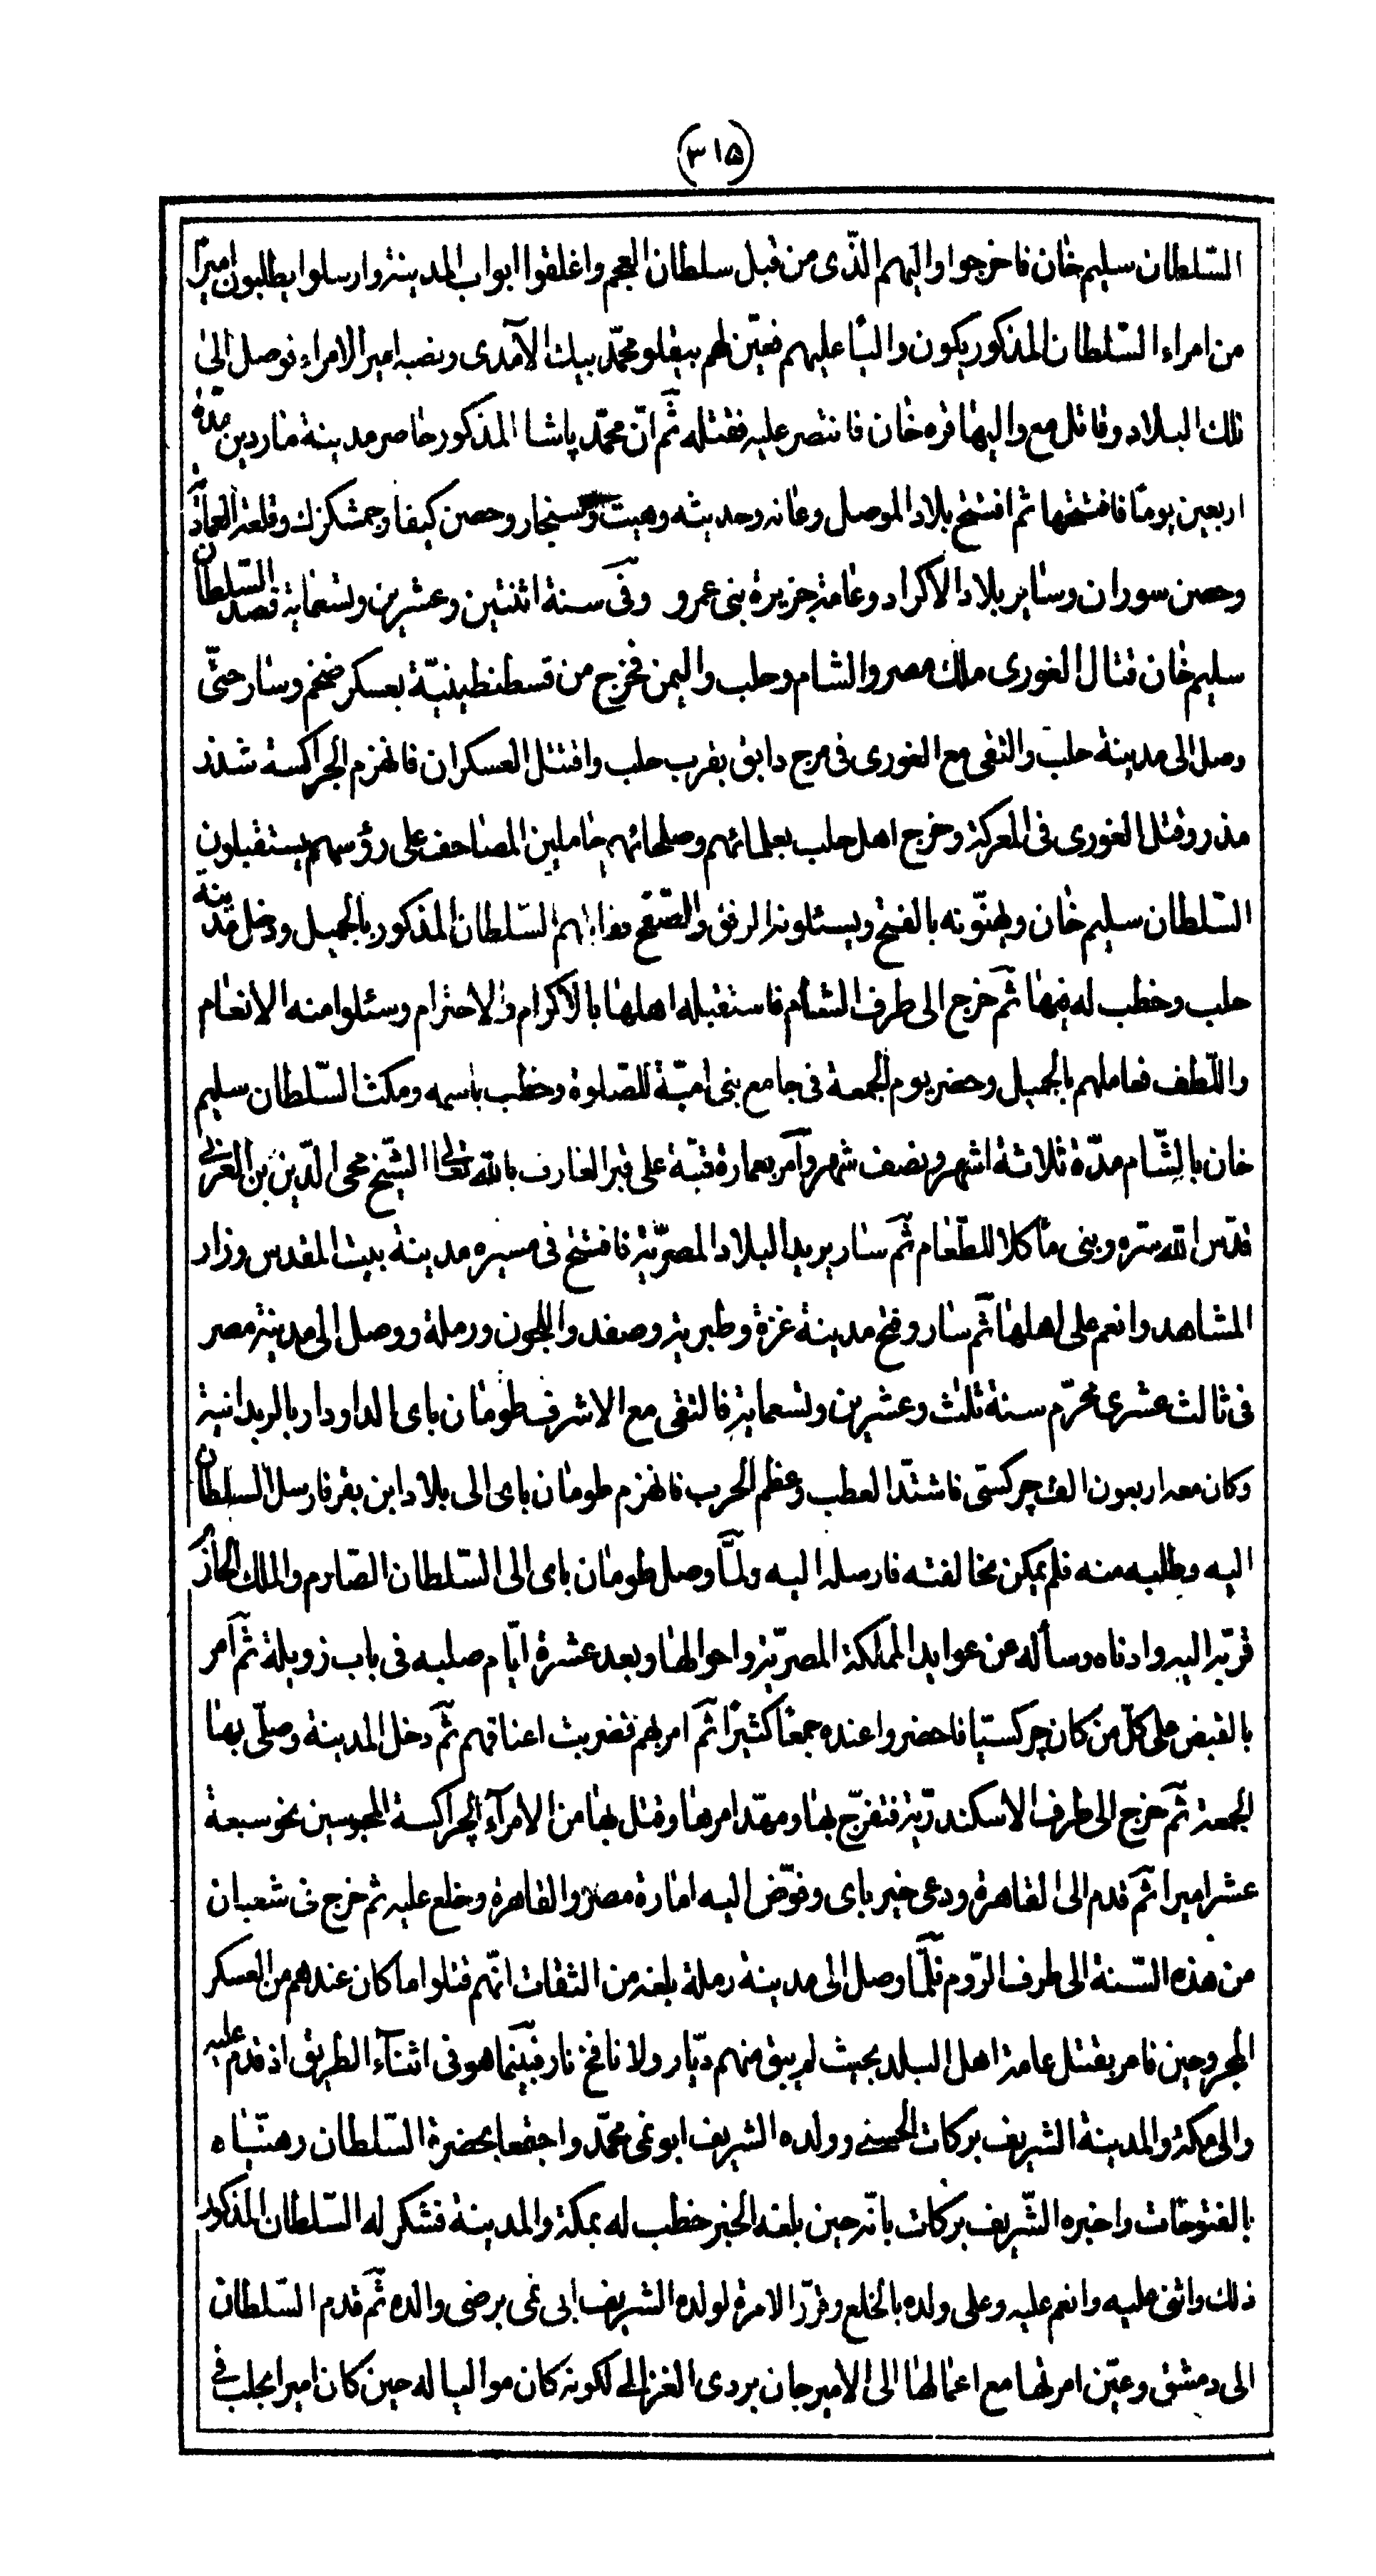 (٣١۵)
السّلطان سليم خان فاخرجوا واليهم الذّى من قبل سلطان العجم واغلقوا ابواب المدينة وارسلوا يطلبون اميرًا
من امراء السّلطان المذكور يكون واليًا عليهم فعيّن لهم بيقلو محمّد بيك الآمدى ونصبه امير الامراء فوصل الى
تلك البلاد وقاتل مع واليها قره خان فانتصر عليه فقتله ثمّ انّ محمّد پاشا المذكور حاصر مدينة ماردين مدّة
اربعين يومًا فافتتحها ثم افتتح بلاد الموصل وعانه وحديثه وهيت وسنجار وحصن كيفا وجمشكزك وقلعة العماديّة
وحصن سوران وساير بلاد الاكراد وعامة جزيرة بنى عمرو وفى سنة اثنتين وعشرين وتسعماية قصد السّلطان
سليم خان قتال الغورى ملك مصر والشام وحلب واليمن فخرج من قسطنطينيّة بعسكر ضخم وسار حتّى
وصل الى مدينة حلب والتقى مع الغورى فى مرج دابق بقرب حلب واقتتل العسكران فانهزم الجراكسة شذر
مذر وقتل الغورى فى المعركة وخرج اهل حلب بعلمائهم وصلحائهم حاملين المصاحف على رؤسهم يستقبلون
السّلطان سليم خان ويهنّونه بالفتح ويسئلونه الرفق والصّفح فقابلهم السّلطان المذكور بالجميل ودخل مدينة
حلب وخطب له فيها ثمّ خرج الى طرف الشام فاستقبله اهلها بالاكرام والاحترام وسئلوا منه الانعام
واللّطف فعاملهم بالجميل وحضر يوم الجمعة فى جامع بنى اميّة للصّلوة وخطب باسمه ومكث السّلطان سليم
خان بالشّام مدّة ثلاثة اشهر ونصف شهر وآمر بعمارة قبّة على قبر العارف بالله تعالى الشّيخ محى الدّين بن العربى
قدّس الله سرّه وبنى مأكلا للطّعام ثمّ سار يريد البلاد المصريّة فافتتح فى مسيره مدينة بيت المقدس وزار
المشاهد وانعم على اهلها ثمّ سار وفتح مدينة غزة وطبرية وصفد واللجون ورملة ووصل الى مدينة مصر
فى ثالث عشرى محرّم سنة ثلث وعشرين وتسعماية فالتقى مع الاشرف طومان باى الداودار بالريدانية
وكان معه اربعون الف چركسى فاشتدّ العطب وعظم الحرب فانهزم طومان باى الى بلاد ابن بقر فارسل السلطان
اليه وطلبه منه فلم يمكن مخالفته فارسله اليه ولمّا وصل طومان باى الى السّلطان الصّارم والملك الحازم
قرّبه اليه وادناه وسأله عن عوايد المملكة المصريّة واحوالها وبعد عشرة ايّام صلبه فى باب زويلة ثمّ آمر
بالقبض على كلّ من كان چركسيّا فاحضروا عنده جمعًا كثيرًا ثمّ امر بهم فضربت اعناقهم ثمّ دخل المدينة وصلّى بها
الجمعة ثمّ خرج الى طرف الاسكندريّة فتفرّج بها ومهّد امرها وقتل بها من الامرآء الچراكسة المحبوسين نحو سبعة
عشر اميرا ثمّ قدم الى القاهرة ودعى خير باى وفوّض اليه امارة مصر والقاهرة وخلع عليه ثم خرج فى شعبان
من هذه السّنة الى طرف الرّوم فلمّا وصل الى مدينة رملة بلغه من الثقات انّهم قتلوا ما كان عندهم من العسكر
المجروحين فامر بقتل عامة اهل البلد بحيث لم يبق منهم ديّار ولا نافخ نار فبينما هو فى اثنآء الطريق اذ قدم عليه
والى مكة والمدينة الشريف بركات الحسنى وولده الشريف ابو نمى محمّد واجتمعا بحضرة السّلطان وهنّياه
بالفتوحات واخبره الشّريف بركات بانّه حين بلغه الخبر خطب له بمكة والمدينة فشكر له السّلطان المذكور
ذلك واثنى عليه وانعم عليه وعلى ولده بالخلع وقرّر الامرة لولده الشريف ابى نمى برضى والده ثمّ قدم السّلطان
الى دمشق وعيّن امرتها مع اعمالها الى الامير جان بردى الغزالى لكونه كان مواليا له حين كان اميرا بحلب فى